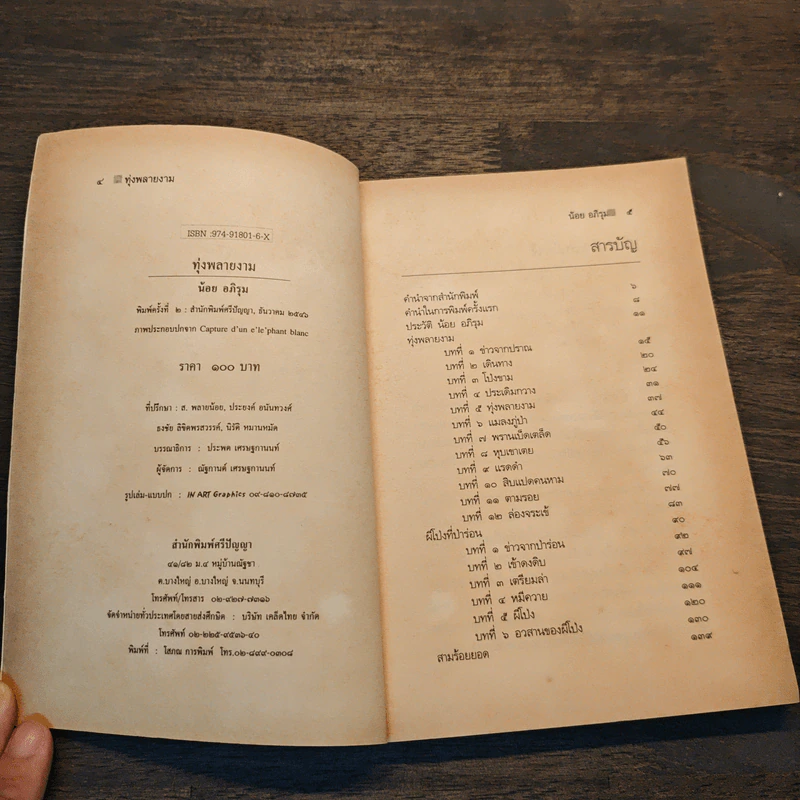 ๔ ทุ่งพลายงาม
ISBN :974-91801-6-X
ทุ่งพลายงาม
น้อย อภิรุม
พิมพ์ครั้งที่ ๒ : สำนักพิมพ์ศรีปัญญา, ธันวาคม ๒๕๔๖
ภาพประกอบปกจาก Capture d'un e'le'phant blanc
ราคา ๑๐๐ บาท
ที่ปรึกษา : ส. พลายน้อย, ประยงค์ อนันทวงศ์
ธงชัย ลิขิตพรสวรรค์, นิรัติ หมานหมัด
บรรณาธิการ : ประพต เศรษฐกานนท์
ผู้จัดการ : ณัฐกานต์ เศรษฐกานนท์
รูปเล่ม-แบบปก : IN ART Graphics ๐๙-๘๑๐-๘๗๓๕
สำนักพิมพ์ศรีปัญญา
๔๑/๘๒ ม.๔ หมู่บ้านณัฐชา
ต.บางใหญ่ อ.บางใหญ่ จ.นนทบุรี
โทรศัพท์/โทรสาร ๐๒-๙๒๗-๗๓๑๖
จัดจำหน่ายทั่วประเทศโดยสายส่งศึกษิต : บริษัท เคล็ดไทย จำกัด
โทรศัพท์ ๐๒-๒๒๕-๙๕๓๖-๔๐
พิมพ์ที่ : โสภณ การพิมพ์ โทร.๐๒-๘๙๙-๐๓๐๘
น้อย อภิรุม ๕
สารบัญ
คำนำจากสำนักพิมพ์ ๖
คำนำในการพิมพ์ครั้งแรก ๘
ประวัติ น้อย อภิรุม ๑๑
ทุ่งพลายงาม
บทที่ ๑ ข่าวจากปราณ ๑๕
บทที่ ๒ เดินทาง ๒๐
บทที่ ๓ โป่งขาม ๒๔
บทที่ ๔ ประเดิมกวาง ๓๑
บทที่ ๕ ทุ่งพลายงาม ๓๗
บทที่ ๖ แมลงภู่ป่า ๔๔
บทที่ ๗ พรานเบ็ดเตล็ด ๕๐
บทที่ ๘ หุบเขาเตย ๕๖
บทที่ ๙ แรดดำ ๖๓
บทที่ ๑๐ สิบแปดคนหาม ๗๐
บทที่ ๑๑ ตามรอย ๗๗
บทที่ ๑๒ ล่องจระเข้ ๘๓
ผีโป่งที่ป่าร่อน ๙๐
บทที่ ๑ ข่าวจากป่าร่อน ๙๒
บทที่ ๒ เข้าดงดิบ ๙๗
บทที่ ๓ เตรียมล่า ๑๐๔
บทที่ ๔ หมีควาย ๑๑๑
บทที่ ๕ ผีโป่ง ๑๒๐
บทที่ ๖ อวสานของผีโป่ง ๑๓๐
สามร้อยยอด ๑๓๙